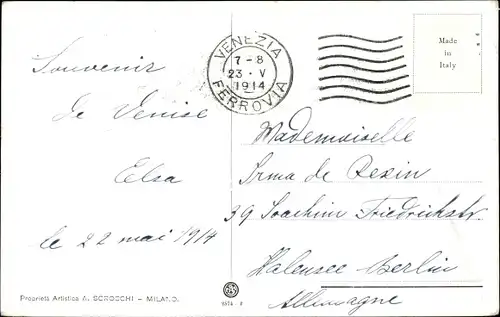 VENEZIA
7 - 8
23 · V
1914
FERROVIA
Made
in
Italy
Souvenir
de Venise
Elsa
le 22 mai 1914
Mademoiselle
Irma de Pexin
39 Joachim Friedrichstr.
Halensee Berlin
Allemagne
Proprietà Artistica A. SCROCCHI - MILANO.